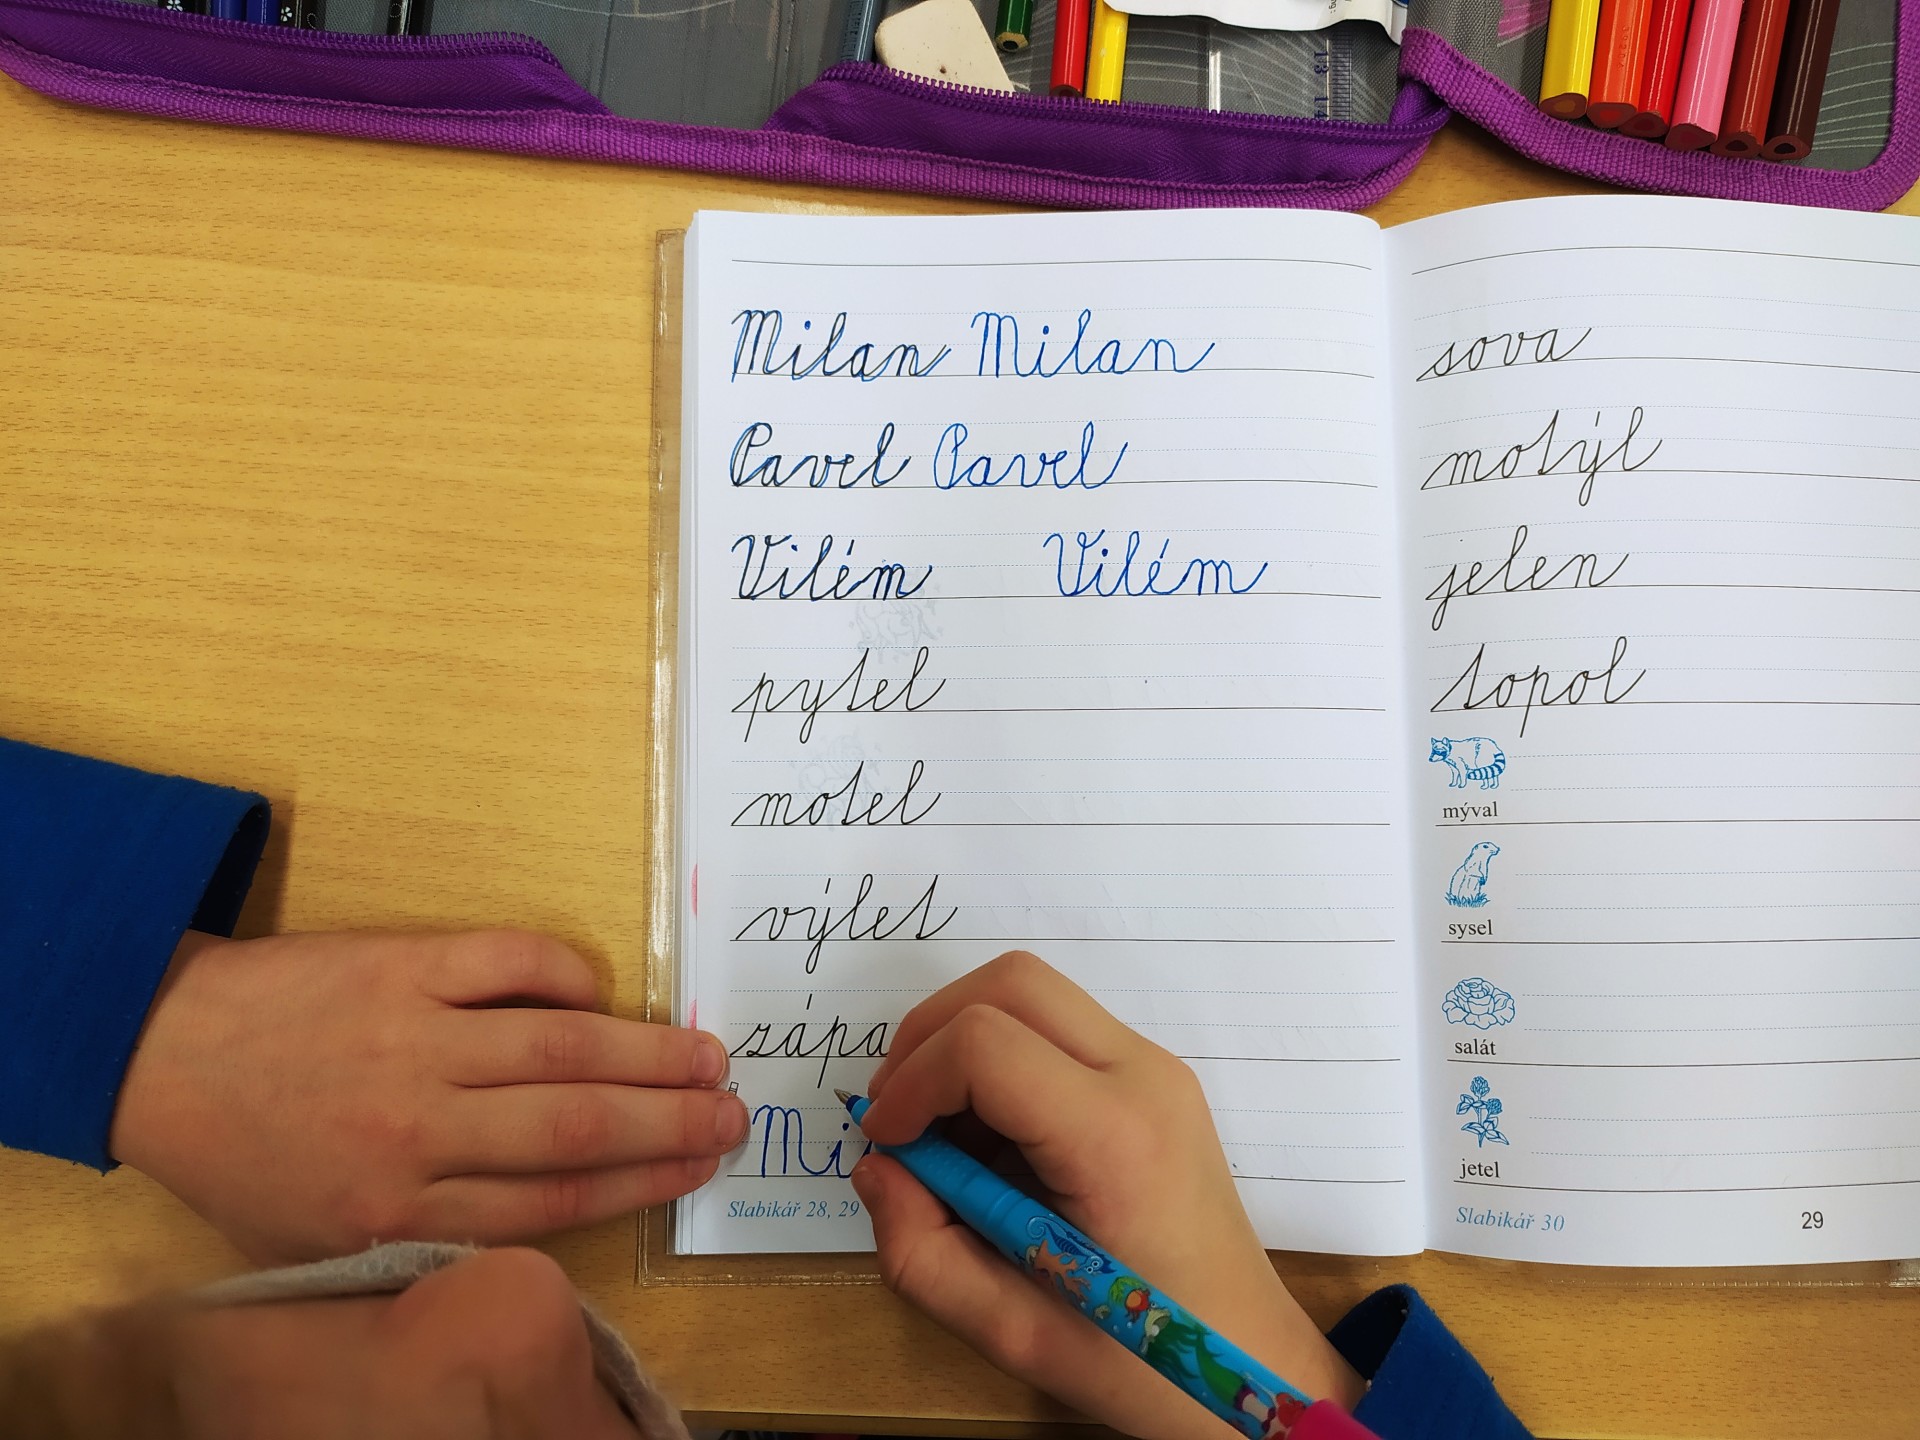 Milan Milan
Pavel Pavel
Vilém Vilém
pytel
motel
výlet
Slabikář 28, 29
sova
motýl
jelen
topol
mýval
sysel
salát
jetel
Slabikář 30
29
13
14